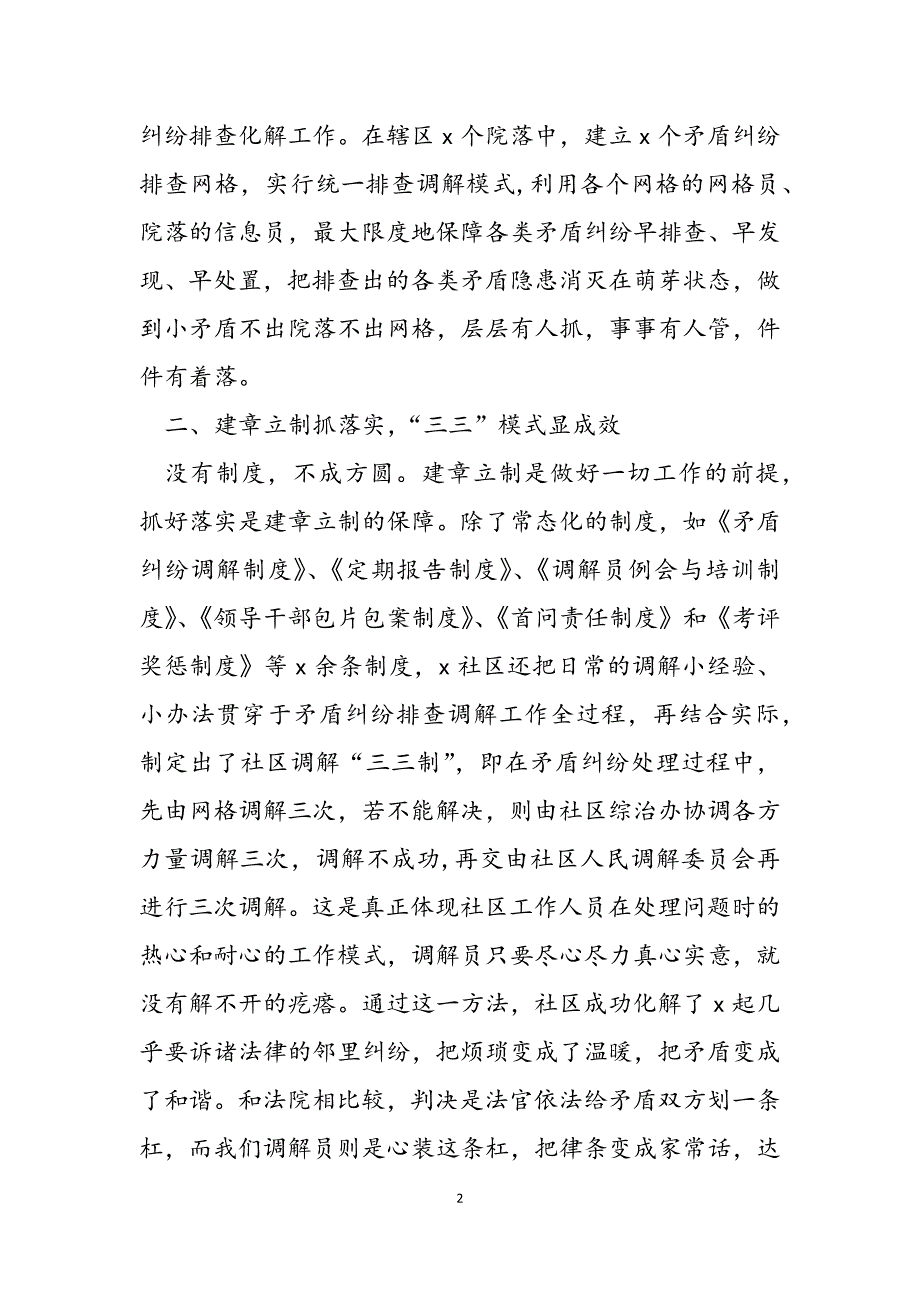 纠纷排查化解工作。在辖区 x 个院落中，建立 x 个矛盾纠纷
排查网格，实行统一排查调解模式,利用各个网格的网格员、
院落的信息员，最大限度地保障各类矛盾纠纷早排查、早发
现、早处置，把排查出的各类矛盾隐患消灭在萌芽状态，做
到小矛盾不出院落不出网格，层层有人抓，事事有人管，件
件有着落。
二、建章立制抓落实，“三三”模式显成效
没有制度，不成方圆。建章立制是做好一切工作的前提，
抓好落实是建章立制的保障。除了常态化的制度，如《矛盾
纠纷调解制度》、《定期报告制度》、《调解员例会与培训制
度》、《领导干部包片包案制度》、《首问责任制度》和《考评
奖惩制度》等 x 余条制度，x 社区还把日常的调解小经验、
小办法贯穿于矛盾纠纷排查调解工作全过程，再结合实际，
制定出了社区调解“三三制”，即在矛盾纠纷处理过程中，
先由网格调解三次，若不能解决，则由社区综治办协调各方
力量调解三次，调解不成功,再交由社区人民调解委员会再
进行三次调解。这是真正体现社区工作人员在处理问题时的
热心和耐心的工作模式，调解员只要尽心尽力真心实意，就
没有解不开的疙瘩。通过这一方法，社区成功化解了 x 起几
乎要诉诸法律的邻里纠纷，把烦琐变成了温暖，把矛盾变成
了和谐。和法院相比较，判决是法官依法给矛盾双方划一条
杠，而我们调解员则是心装这条杠，把律条变成家常话，达
2